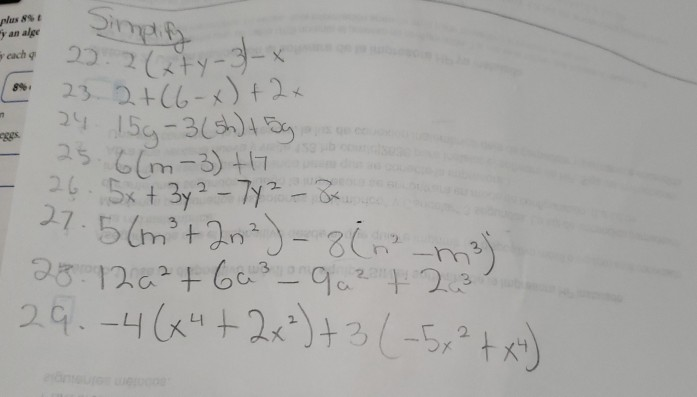 plus 8% t
y an alge
each q
8%
eggs.
Simplify
22. 2(x+y-3)-x
23. 2+(6-x)+2x
24. 15g-3(5h)+5g
25. 6(m-3)+17
26. 5x+3y²-7y²-8x
27. 5(m³+2n²)-8(n²-m³)
28. 12a²+6a³-9a²+2a³
29. -4(x⁴+2x²)+3(-5x²+x⁴)